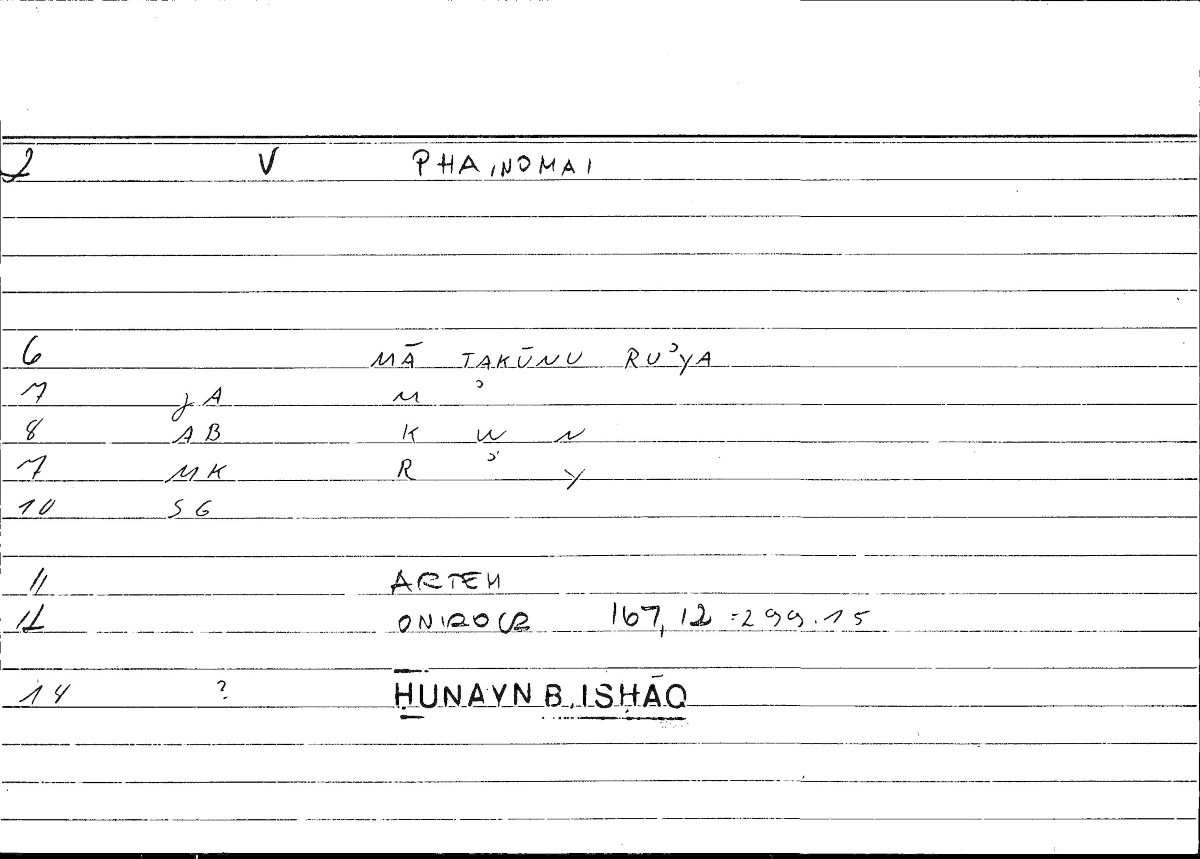 2 V PHAINOMAI
6 MĀ TAKŪNU RUʾYA
7 JA M ʾ
8 AB K W N
7 MK R ʾ Y
10 SG
11 ARTEM
12 ONIROCR 167,12 =299.15
14 ? ḤUNAYN B. ISḤĀQ